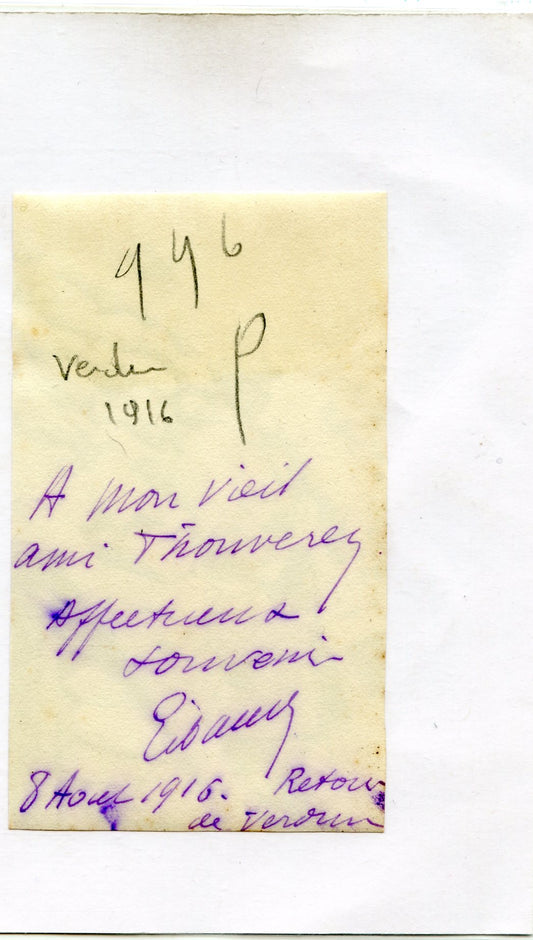 996
P
Verdun
1916
A mon vieil
ami Thouverey
Affectueux
souvenir
8 Aout 1916. Retour
de Verdun